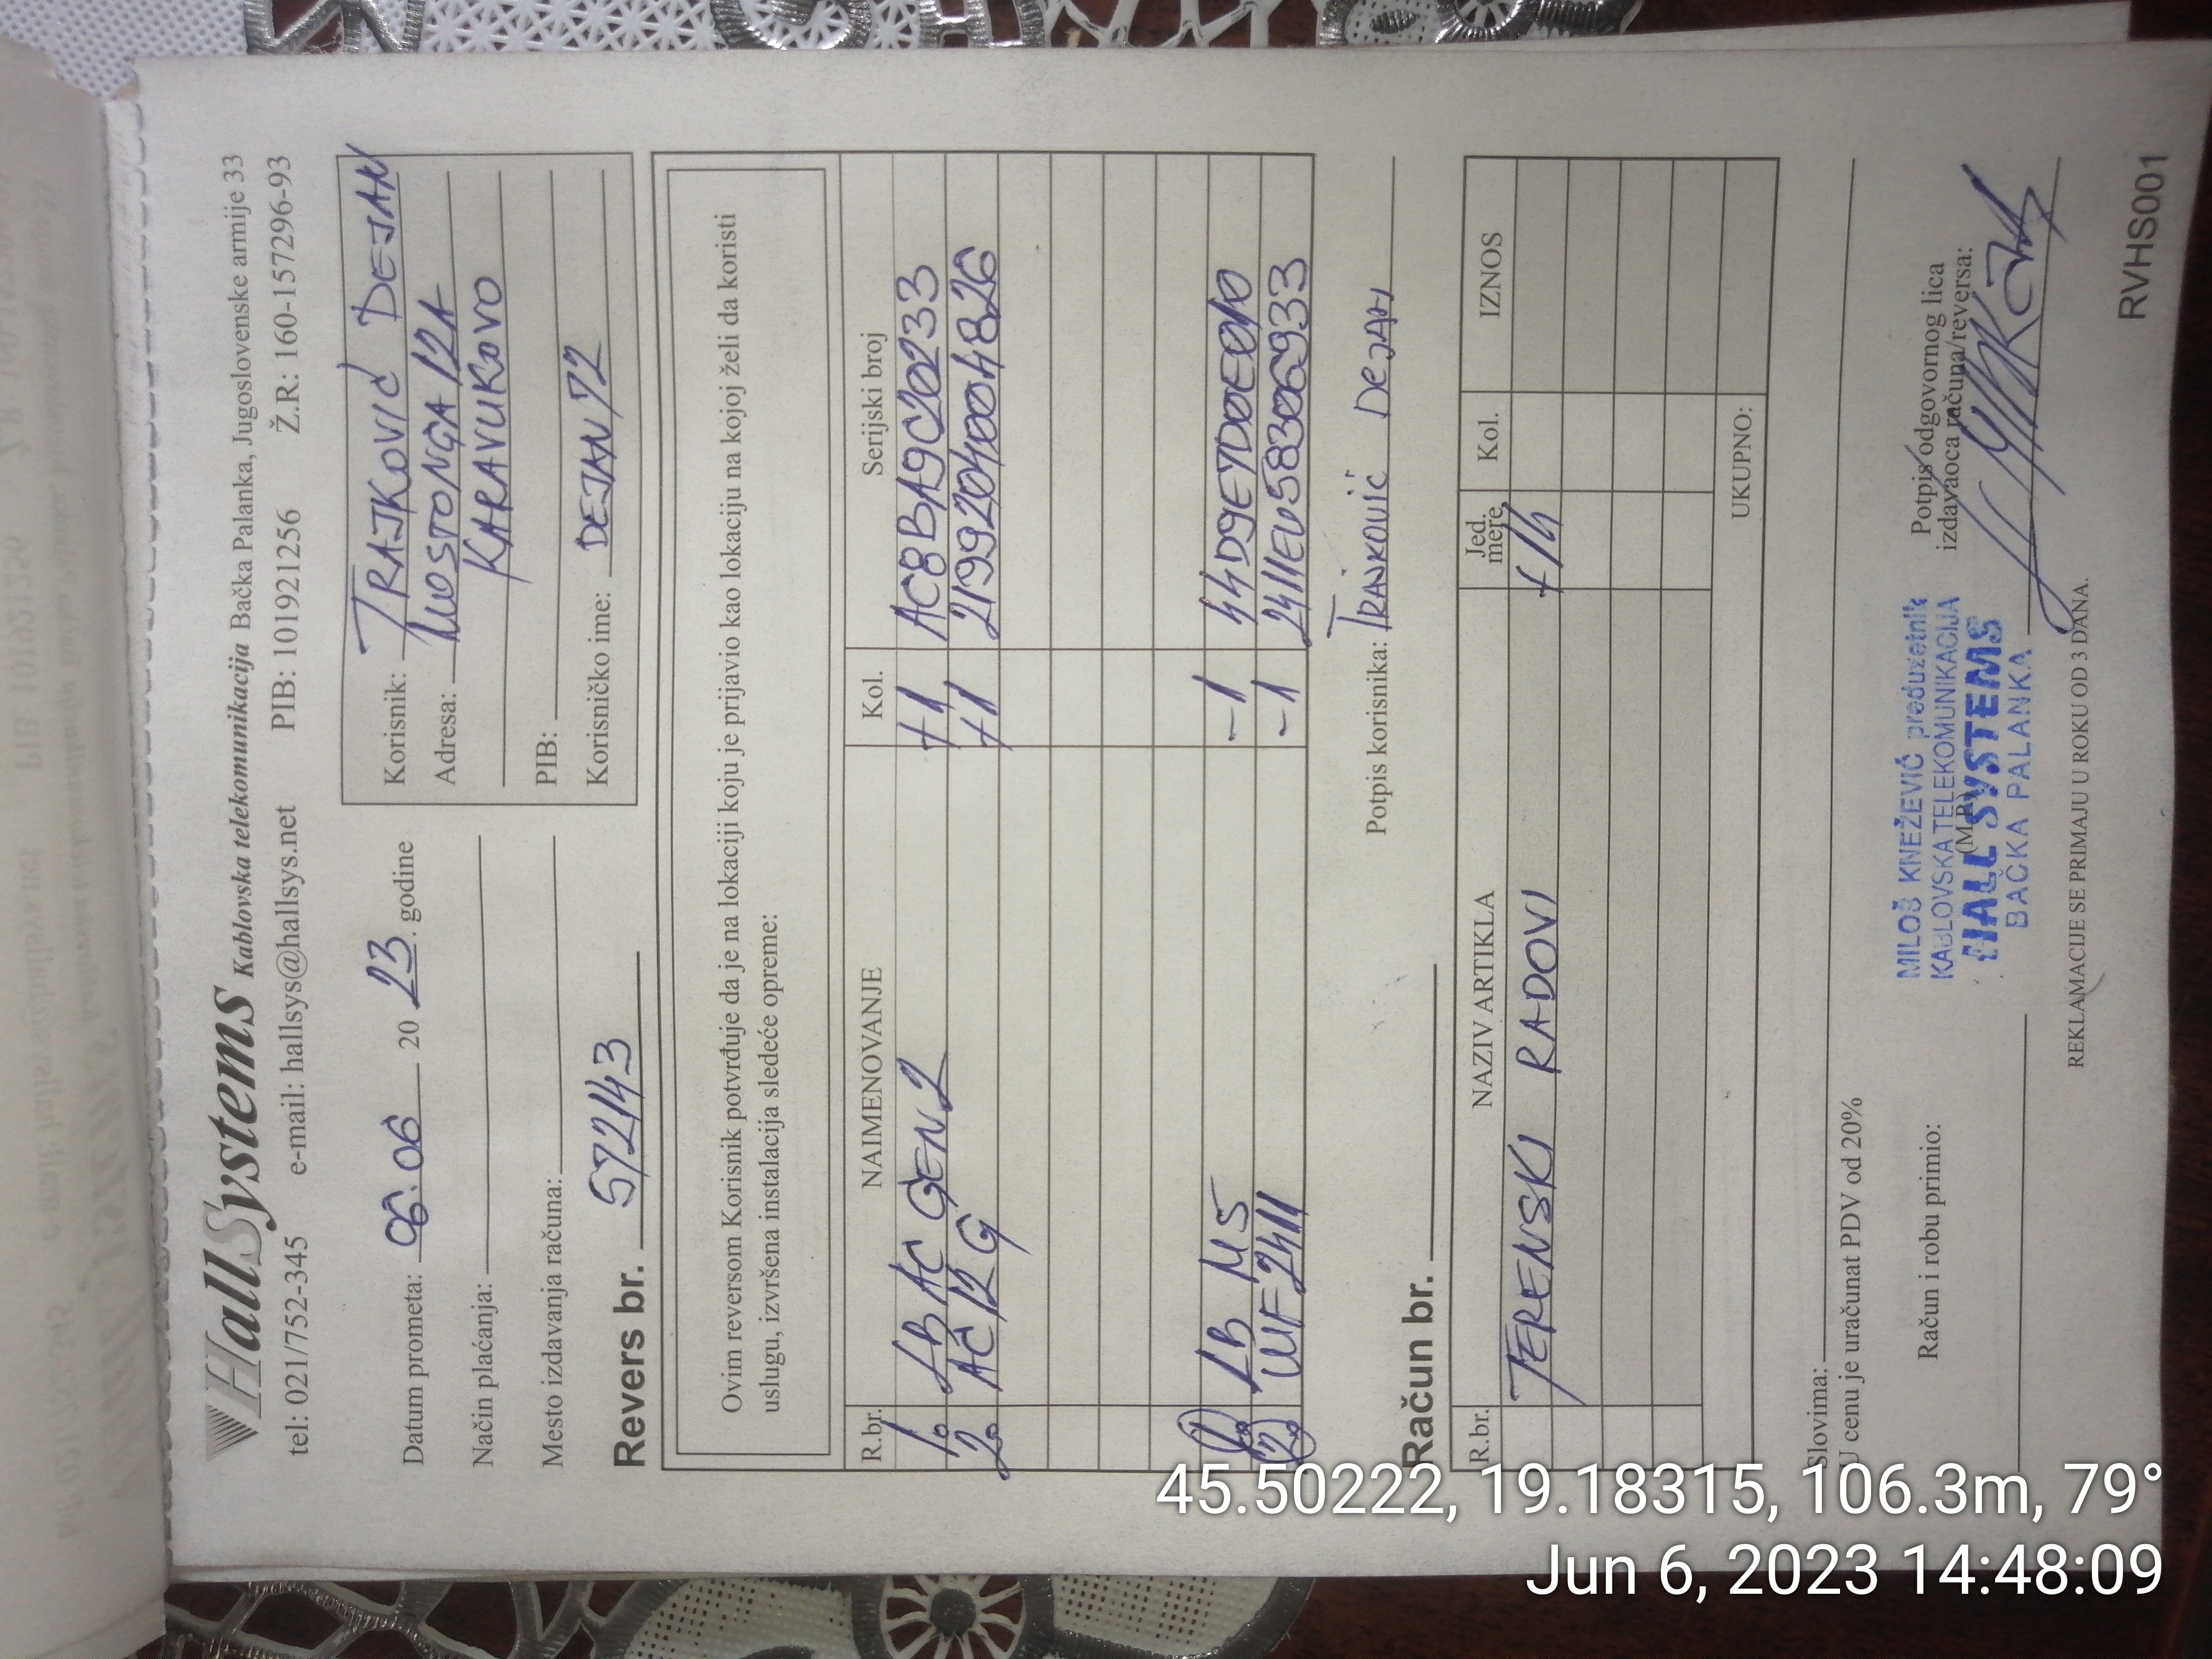 HallSystems Kablovska telekomunikacija Bačka Palanka, Jugoslovenske armije 33
tel: 021/752-345 e-mail: hallsys@hallsys.net PIB: 101921256 Ž.R: 160-157296-93
Datum prometa: 06.06 20 23. godine
Način plaćanja:
Mesto izdavanja računa:
Revers br. 572143
Korisnik: TRAJKOVIĆ DEJAN
Adresa: MOSTONGA 12A
KARAVUKOVO
PIB:
Korisničko ime: DEJAN72
Ovim reversom Korisnik potvrđuje da je na lokaciji koju je prijavio kao lokaciju na kojoj želi da koristi
uslugu, izvršena instalacija sledeće opreme:
R.br. NAIMENOVANJE Kol. Serijski broj
1. LB AC GEN2 +1 AC8BA9C20233
2. AC12G +1 2199204004826
1. LB M5 -1
2. WF2411 -1 2411EV58306933
Potpis korisnika: TRAJKOVIĆ DEJAN
Račun br.
R.br. NAZIV ARTIKLA Jed. mere Kol. IZNOS
TERENSKI RADOVI +/4
UKUPNO:
Slovima:
U cenu je uračunat PDV od 20%
Račun i robu primio:
MILOŠ KNEŽEVIĆ preduzetnik
KABLOVSKA TELEKOMUNIKACIJA
HALL SYSTEMS
BAČKA PALANKA
(M.P.)
Potpis odgovornog lica
izdavaoca računa/reversa:
REKLAMACIJE SE PRIMAJU U ROKU OD 3 DANA.
RVHS001
45.50222, 19.18315, 106.3m, 79°
Jun 6, 2023 14:48:09